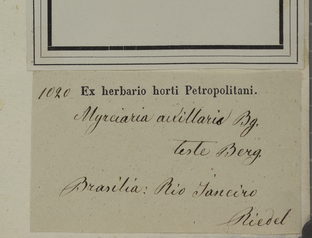 1020 Ex herbario horti Petropolitani.
Myrciaria axillaris Bg.
teste Berg.
Brasilia: Rio Janeiro
Riedel